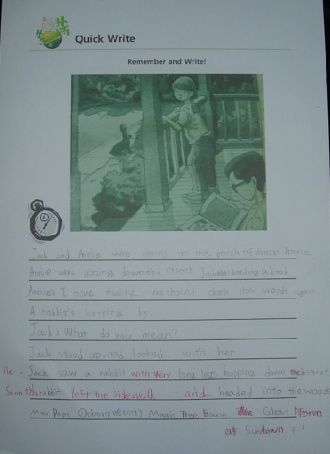 Quick Write
Remember and Write!
Jack and Annie were sitting on the porch of their house
Annie were gazing down the street Jack was reading a book
Annie: I have feeling we should check the woods again
A rabbit's hopping by.
Jack: What do you mean?
Jack stood up and looked with her
He Jack saw a rabbit with very long legs hopping down the street
Soon the rabbit left the sidewalk and headed into the woods
Mary Pope Osborne Magic Tree House